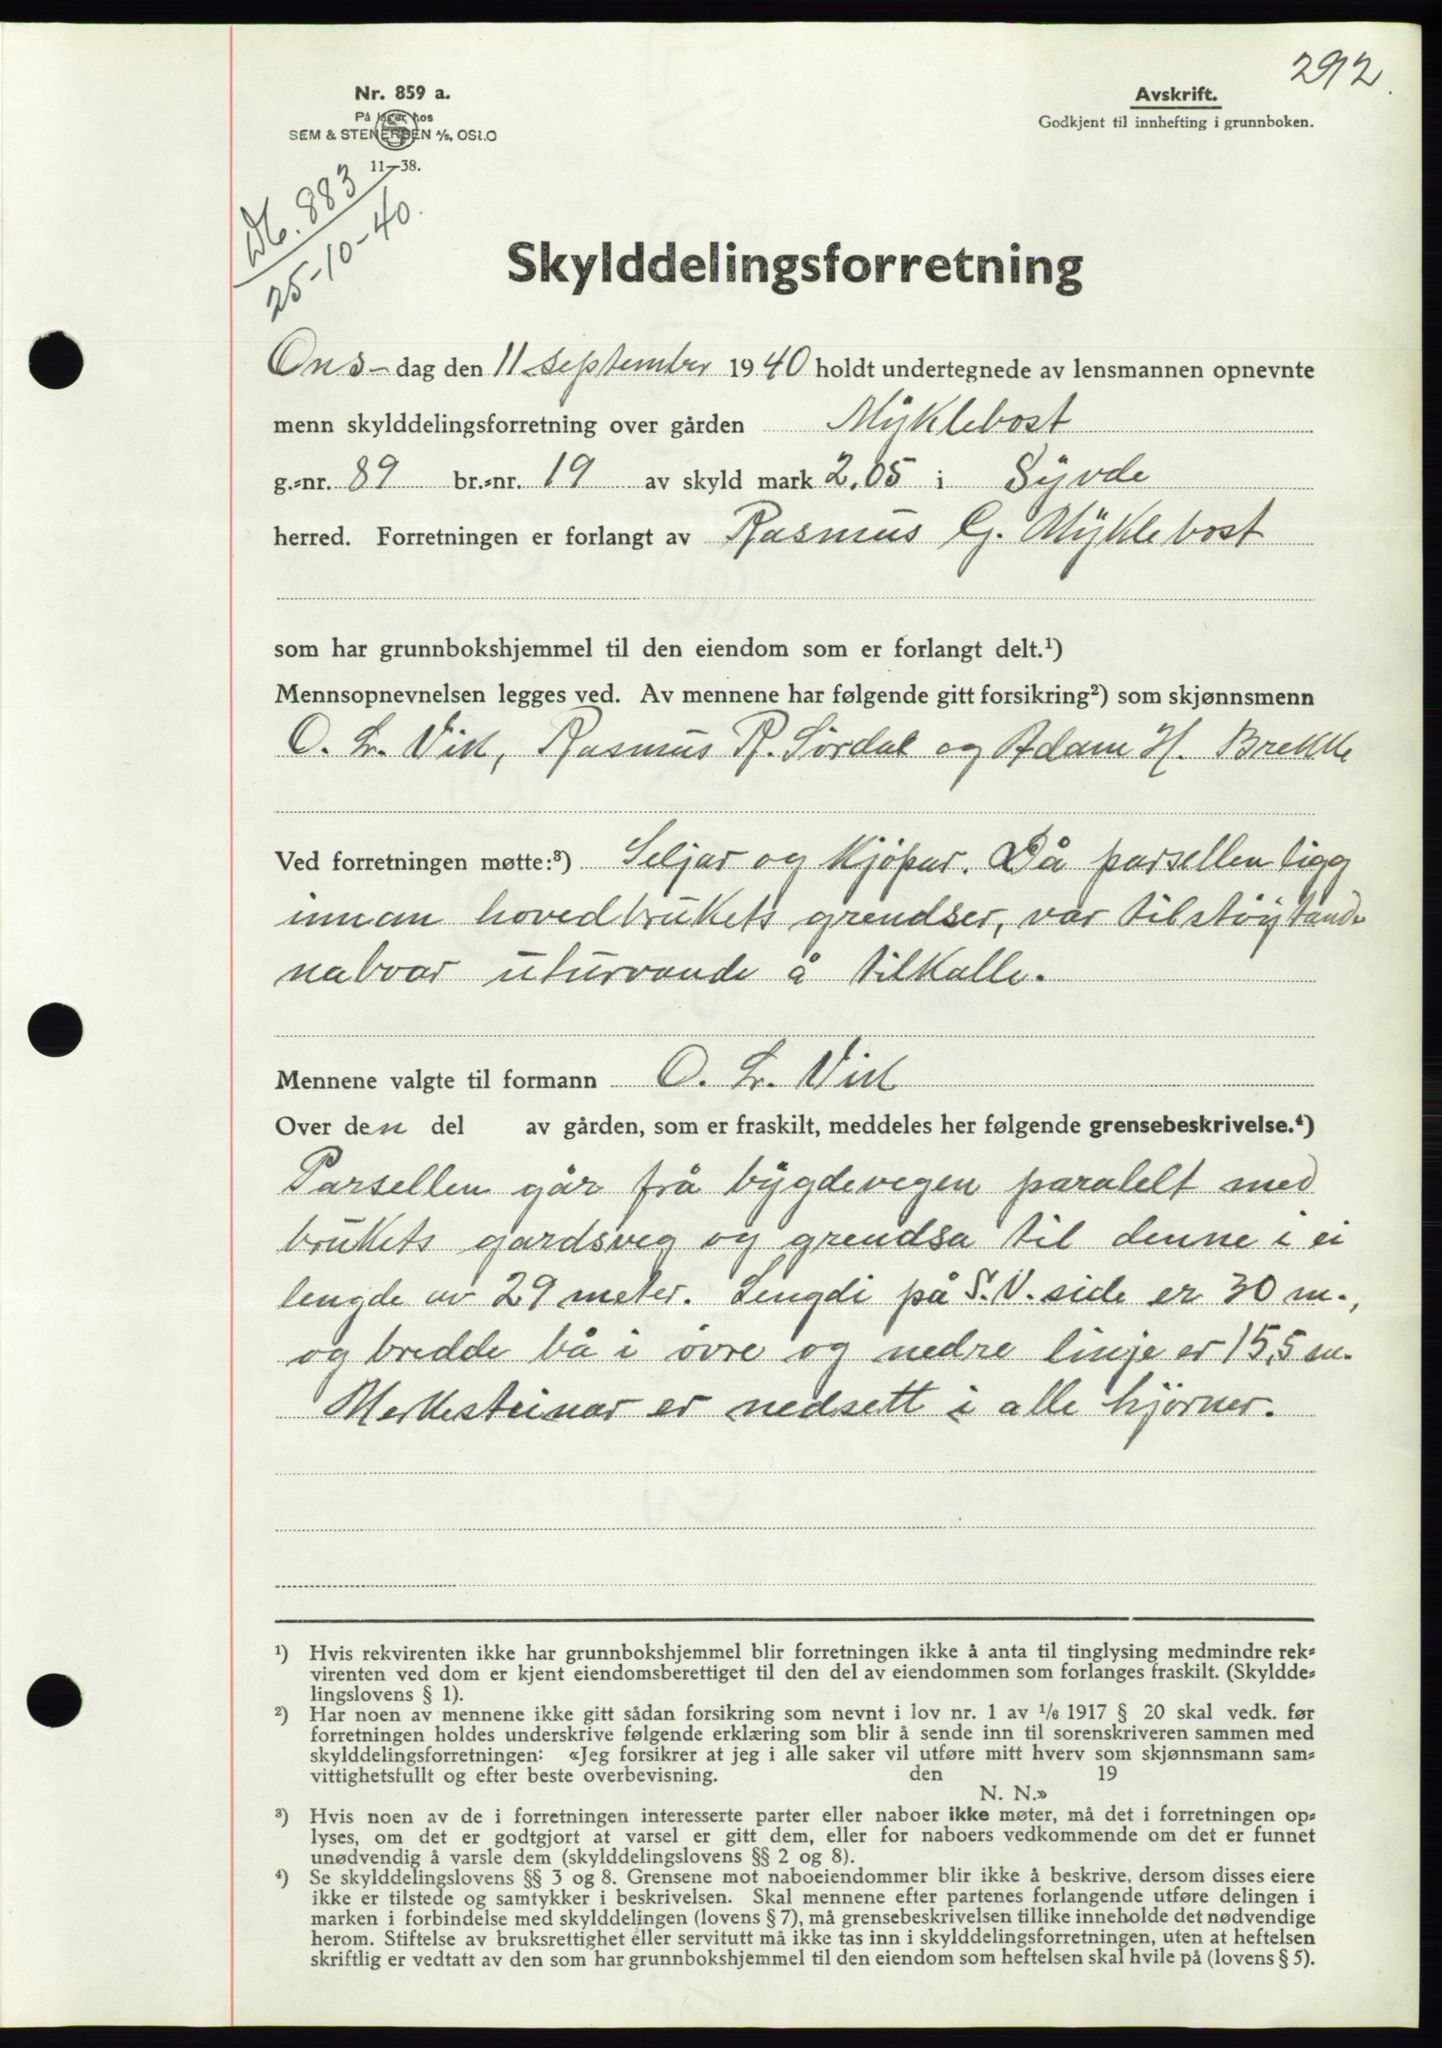 292.
Nr. 859 a.
På lager hos
SEM & STENERSEN A/S, OSLO
11—38.
Avskrift.
Godkjent til innhefting i grunnboken.
Db. 883
25-10-40.
Skylddelingsforretning
Ons-dag den 11 september 1940 holdt undertegnede av lensmannen opnevnte
menn skylddelingsforretning over gården Myklebost
g.-nr. 89 br.-nr. 19 av skyld mark 2,05 i Syvde
herred. Forretningen er forlangt av Rasmus G. Myklebost
som har grunnbokshjemmel til den eiendom som er forlangt delt.¹)
Mennsopnevnelsen legges ved. Av mennene har følgende gitt forsikring²) som skjønnsmenn
O. L. Vik, Rasmus R. Sørdal og Adam H. Brekke
Ved forretningen møtte:³) Seljar og kjøpar. Då parsellen ligg
innan hovedbrukets grendser, var tilstøytande
naboar uturvande å tilkalle.
Mennene valgte til formann O. L. Vik
Over den del av gården, som er fraskilt, meddeles her følgende grensebeskrivelse.⁴)
Parsellen går frå bygdevegen paralelt med
brukets gardsveg og grendsa til denne i ei
lengde av 29 meter. Lengdi på S.V. side er 30 m.,
og bredde bå i øvre og nedre linje er 15,5 m.
Merkesteinar er nedsett i alle hjørner.
¹) Hvis rekvirenten ikke har grunnbokshjemmel blir forretningen ikke å anta til tinglysing medmindre rek-
virenten ved dom er kjent eiendomsberettiget til den del av eiendommen som forlanges fraskilt. (Skyldde-
lingslovens § 1).
²) Har noen av mennene ikke gitt sådan forsikring som nevnt i lov nr. 1 av 1/6 1917 § 20 skal vedk. før
forretningen holdes underskrive følgende erklæring som blir å sende inn til sorenskriveren sammen med
skylddelingsforretningen: «Jeg forsikrer at jeg i alle saker vil utføre mitt hverv som skjønnsmann sam-
vittighetsfullt og efter beste overbevisning. den 19
N. N.»
³) Hvis noen av de i forretningen interesserte parter eller naboer ikke møter, må det i forretningen op-
lyses, om det er godtgjort at varsel er gitt dem, eller for naboers vedkommende om det er funnet
unødvendig å varsle dem (skylddelingslovens §§ 2 og 8).
⁴) Se skylddelingslovens §§ 3 og 8. Grensene mot naboeiendommer blir ikke å beskrive, dersom disses eiere
ikke er tilstede og samtykker i beskrivelsen. Skal mennene efter partenes forlangende utføre delingen i
marken i forbindelse med skylddelingen (lovens § 7), må grensebeskrivelsen tillike inneholde det nødvendige
herom. Stiftelse av bruksrettighet eller servitutt må ikke tas inn i skylddelingsforretningen, uten at heftelsen
skriftlig er vedtatt av den som har grunnbokshjemmel til den eiendom som heftelsen skal hvile på (lovens § 5).